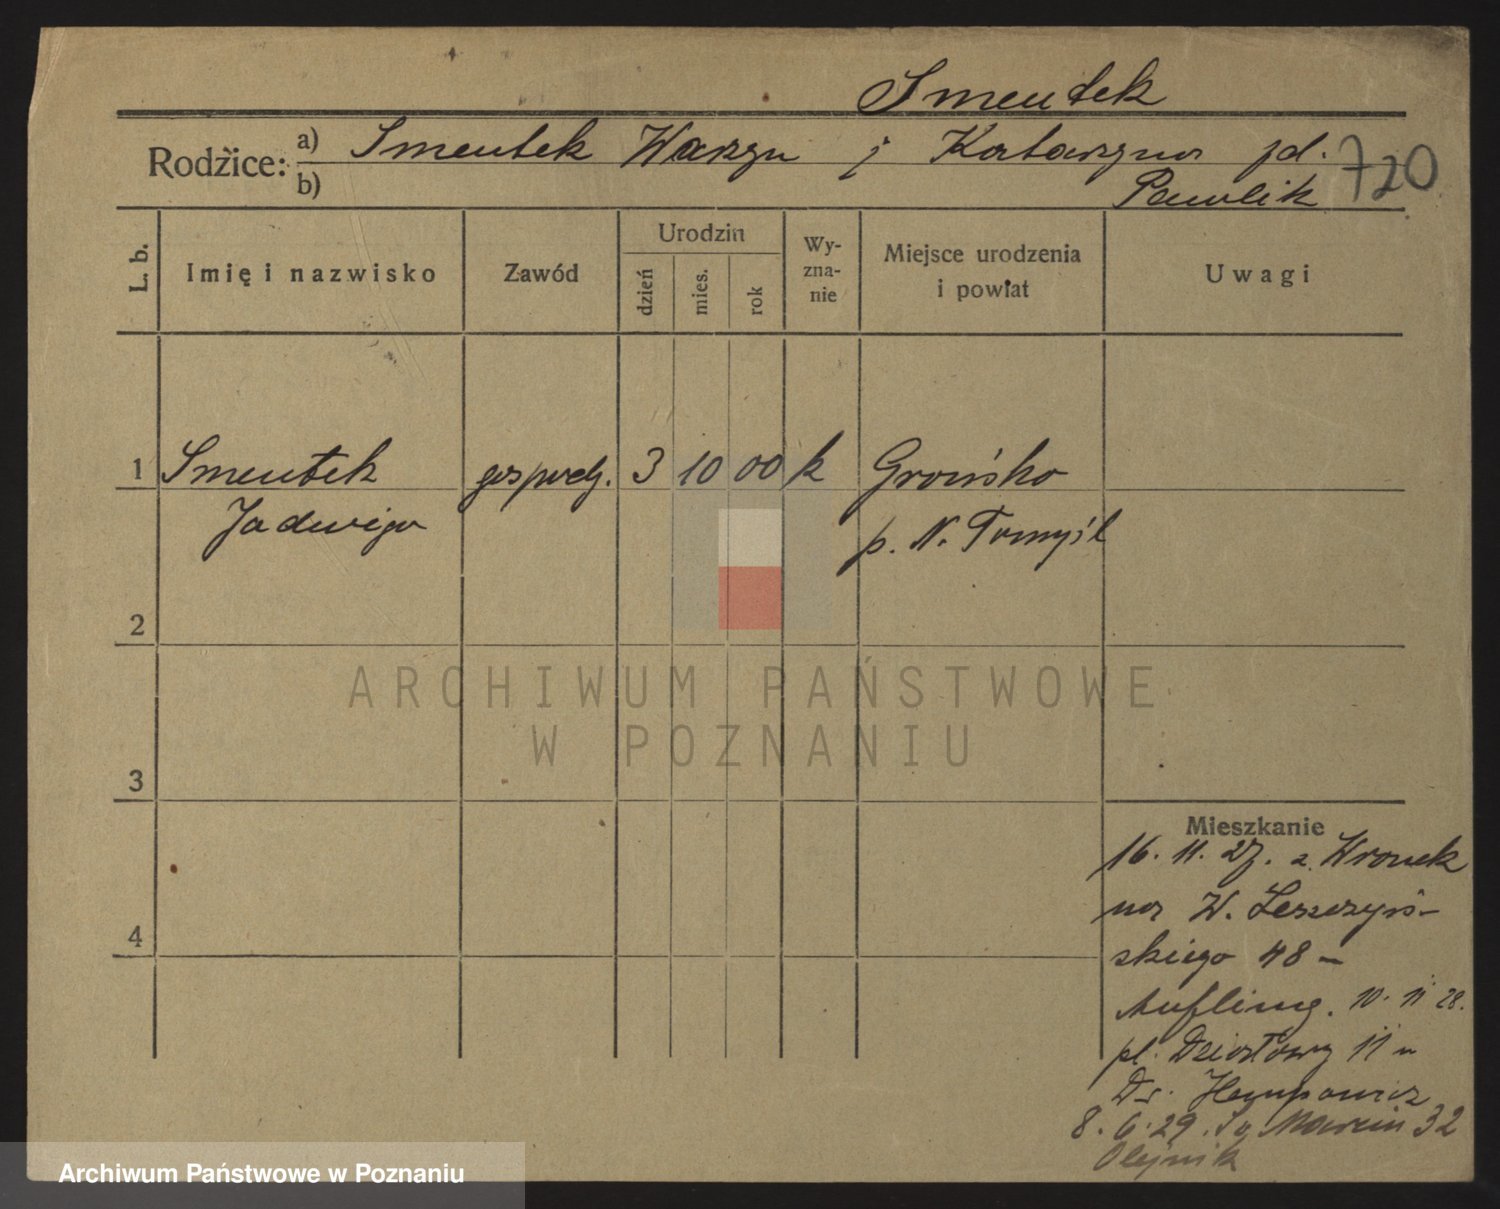 Smentek
Rodzice: a) Smentek Wawrzyn i Katarzyna zd. 720
b) Pawlik
L. b. Imię i nazwisko Zawód Urodzin dzień mies. rok Wyznanie Miejsce urodzenia i powiat Uwagi
1 Smentek gospody. 3 10 00 k Grońsko
Jadwiga p. N. Tomyśl
2
ARCHIWUM PAŃSTWOWE
W POZNANIU
3
Mieszkanie
16. 11. 27. z Wronek
na W. Leszczyń-
4
skiego 48 -
10. 11 28.
pl. Działowy 11 u
Dr.
8. 6. 29. Św Marcin 32
Olejnik
Archiwum Państwowe w Poznaniu